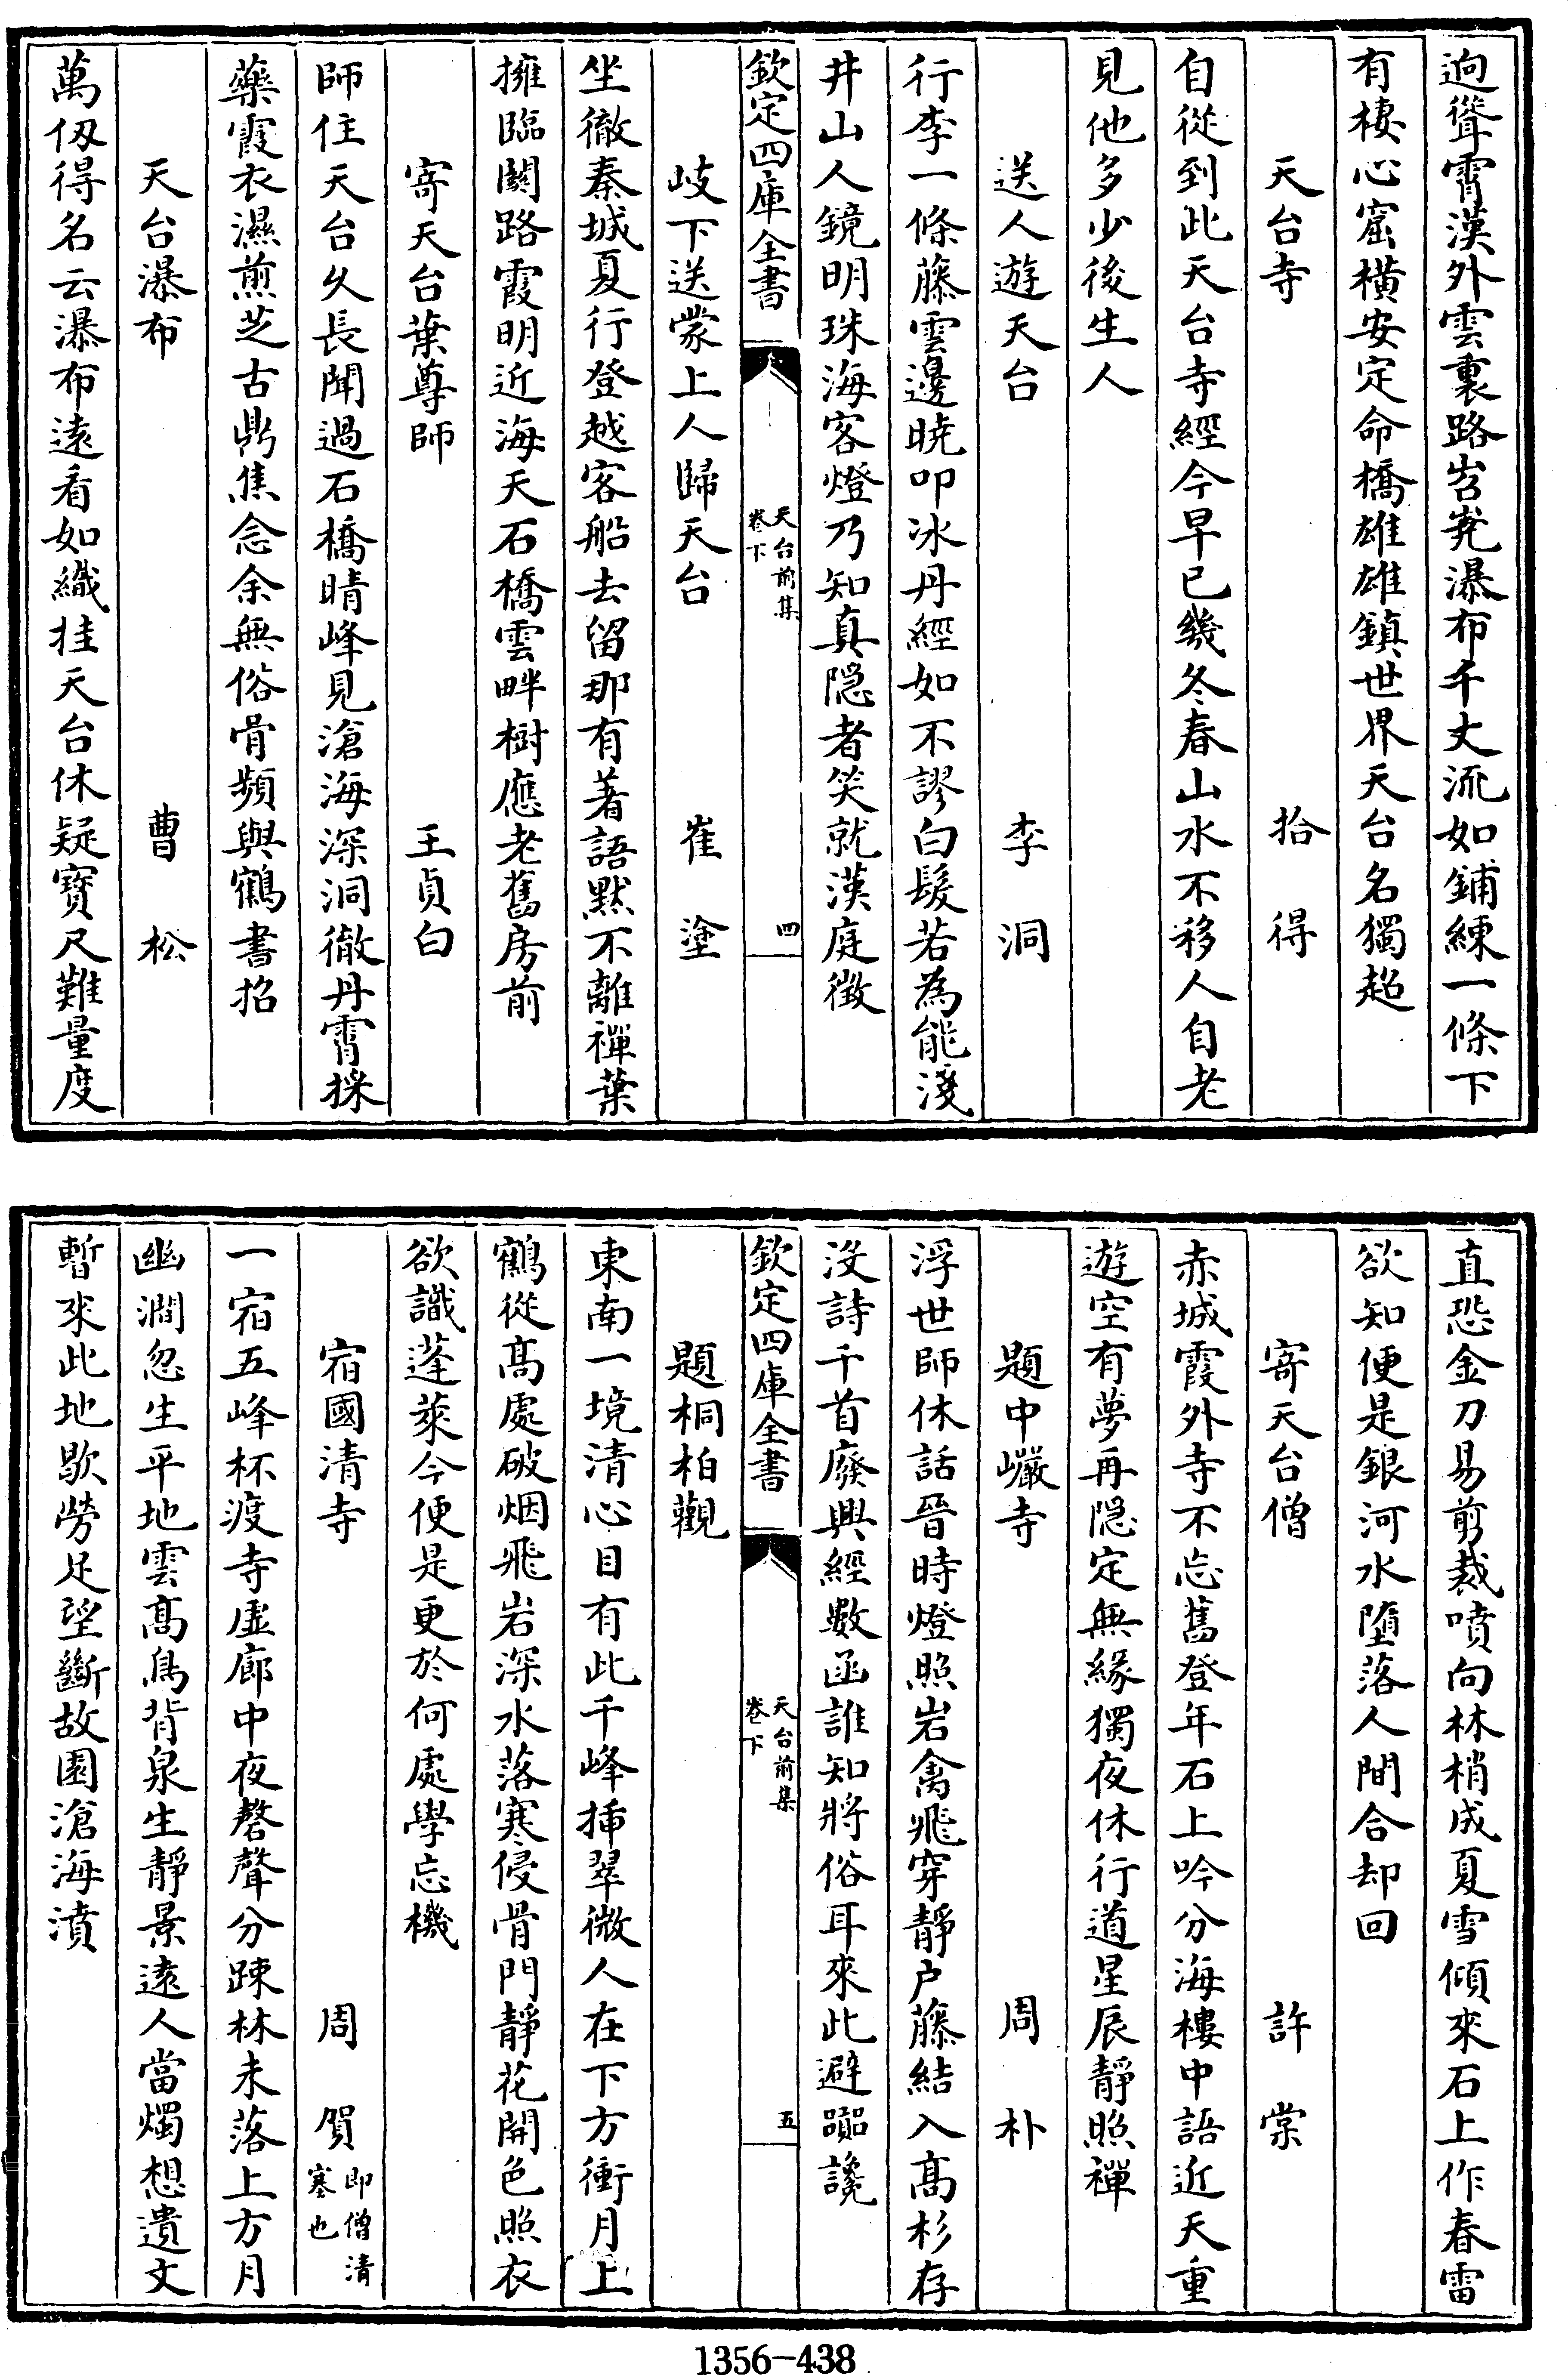 逈聳霄漢外雲裏路岧嶤瀑布千丈流如鋪練一條下
有棲心窟橫安定命橋雄雄鎮世界天台名獨超
天台寺　拾得
自從到此天台寺經今早已幾冬春山水不移人自老
見他多少後生人
送人遊天台　李洞
行李一條藤雲邊曉叩冰丹經如不謬白髮若為能淺
井山人鏡明珠海客燈乃知真隠者笑就漢庭徵
欽定四庫全書　天台前集卷下　四
岐下送蒙上人歸天台　崔塗
坐徹秦城夏行登越客船去留那有著語默不離禪葉
擁臨關路霞明近海天石橋雲畔樹應老舊房前
寄天台葉尊師　王貞白
師住天台久長聞過石橋晴峰見滄海深洞徹丹霄採
藥霞衣濕煎芝古鼎焦念余無俗骨頻與鶴書招
天台瀑布　曹松
萬仭得名云瀑布遠看如織挂天台休疑寳尺難量度
直恐金刀易剪裁噴向林梢成夏雪傾來石上作春雷
欲知便是銀河水墮落人間合却回
寄天台僧　許棠
赤城霞外寺不忘舊登年石上吟分海樓中語近天重
遊空有夢再隠定無緣獨夜休行道星辰靜照禪
題中巗寺　周朴
浮世師休話晉時燈照岩禽飛穿靜户藤結入高杉存
沒詩千首廢興經數函誰知將俗耳來此避嚻讒
欽定四庫全書　天台前集卷下　五
題桐柏觀
東南一境清心目有此千峰挿翠微人在下方衝月上
鶴從髙處破烟飛岩深水落寒侵骨門靜花開色照衣
欲識蓬萊今便是更於何處學忘機
宿國清寺　周賀　即僧清塞也
一宿五峰杯渡寺虛廊中夜磬聲分踈林未落上方月
幽澗忽生平地雲髙鳥背泉生靜景遠人當燭想遺文
暫來此地歇勞足望斷故園滄海濆
1356-438